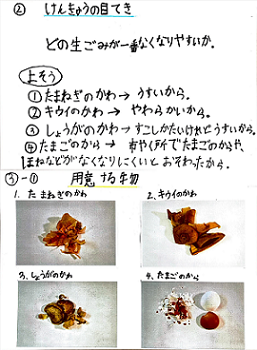 ② けんきゅうの目てき
どの生ごみが一番なくなりやすいか。
よそう
① たまねぎのかわ→うすいから。
② キウイのかわ→やわらかいから。
③ しょうがのかわ→すこしかたいけれどうすいから。
④ たまごのから→
でたまごのからや、
ほねなどがなくなりにくいとおそわったから。
③-① 用意する物
1. たまねぎのかわ
2. キウイのかわ
3. しょうがのかわ
4. たまごのから